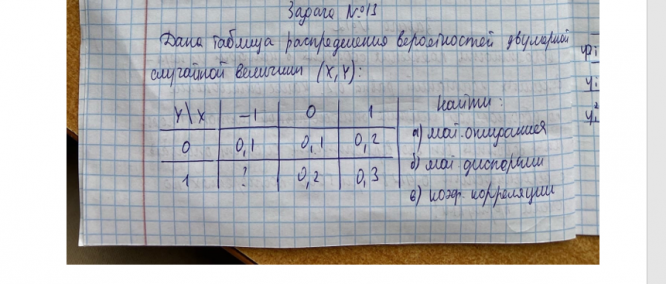 Задача №13
Дана таблица распределения вероятностей двумерной
случайной величины (X, Y):
Y\X -1 0 1
0 0,1 0,1 0,2
1 ? 0,2 0,3
Найти:
а) мат. ожидания
б) мат дисперсии
в) коэф. корреляции